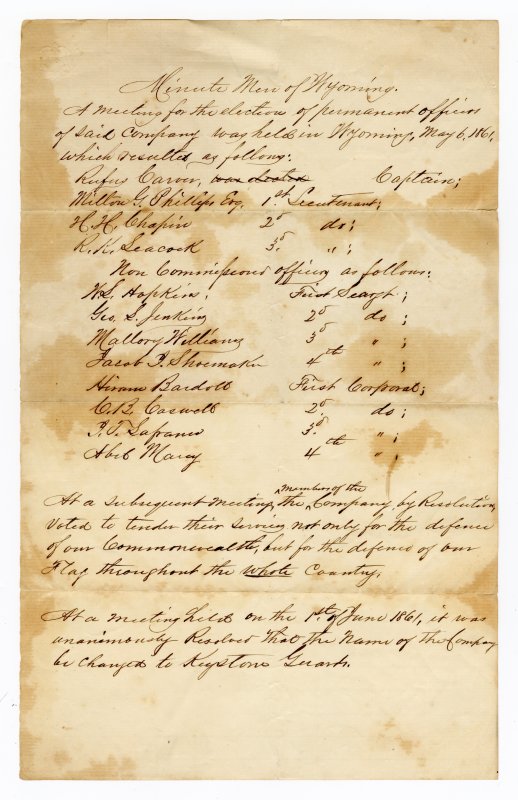 Minute Men of Wyoming.
A meeting for the election of permanent officers
of said Company was held in Wyoming, May 6, 1861,
which resulted as follows:
Rufus Carver, was elected Captain;
Milton G. Phillips Esq. 1st Lieutenant;
H. H. Chapin 2d do;
R. R. Leacock 3d " ;
Non Commissioned officers as follows:
W. S. Hopkins, First Seargt;
Geo. S. Jenkins 2d do ;
Mallory Williams 3d " ;
Jacob P. Shoemaker 4th " ;
Hiram Bardoll First Corporal;
C. B. Caswell 2d do;
P. T. 3d " ;
Abel Marcy 4th " ;
At a subsequent meeting, members of the
the Company by Resolution,
voted to tender their services not only for the defence
of our Commonwealth, but for the defence of our
Flag throughout the whole Country.
At a meeting held on the 1st of June 1861, it was
unanimously Resolved that the Name of the Company
be changed to Keystone Guards.